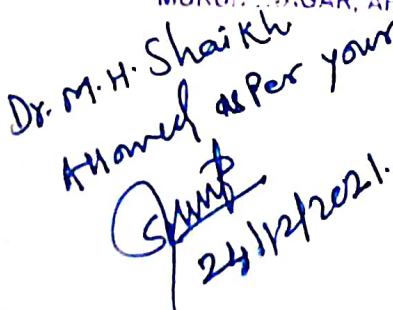 Dr. M. H. Shaikh
Allowed as Per your
24/12/2021.